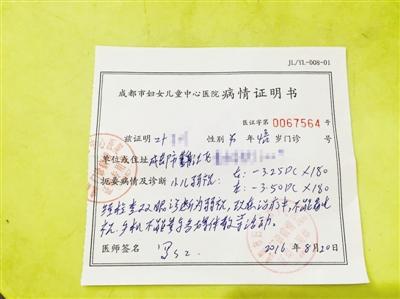 JL/YL-008-01
成都市妇女儿童中心医院 病情证明书
医证字第 0067564 号
兹证明 叶 性别 男 年 岁门诊 号
单位或住址 成都市
扼要病情及诊断 小儿弱视: 右: -3.25DC×180
左: -3.50DC×180
经检查双眼诊断为弱视,现在治疗中,不能看电
视,手机,不能参与多媒体教学活动。
医师签名 2016年8月20日